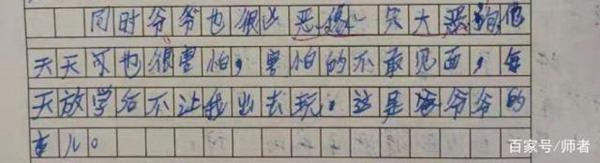 同时爷爷也很凶恶像只大恶狗他
天天可也很害怕，害怕的不敢见面，每
天放学后不让我出去玩。这是爷爷的
事儿。
百家号/师者